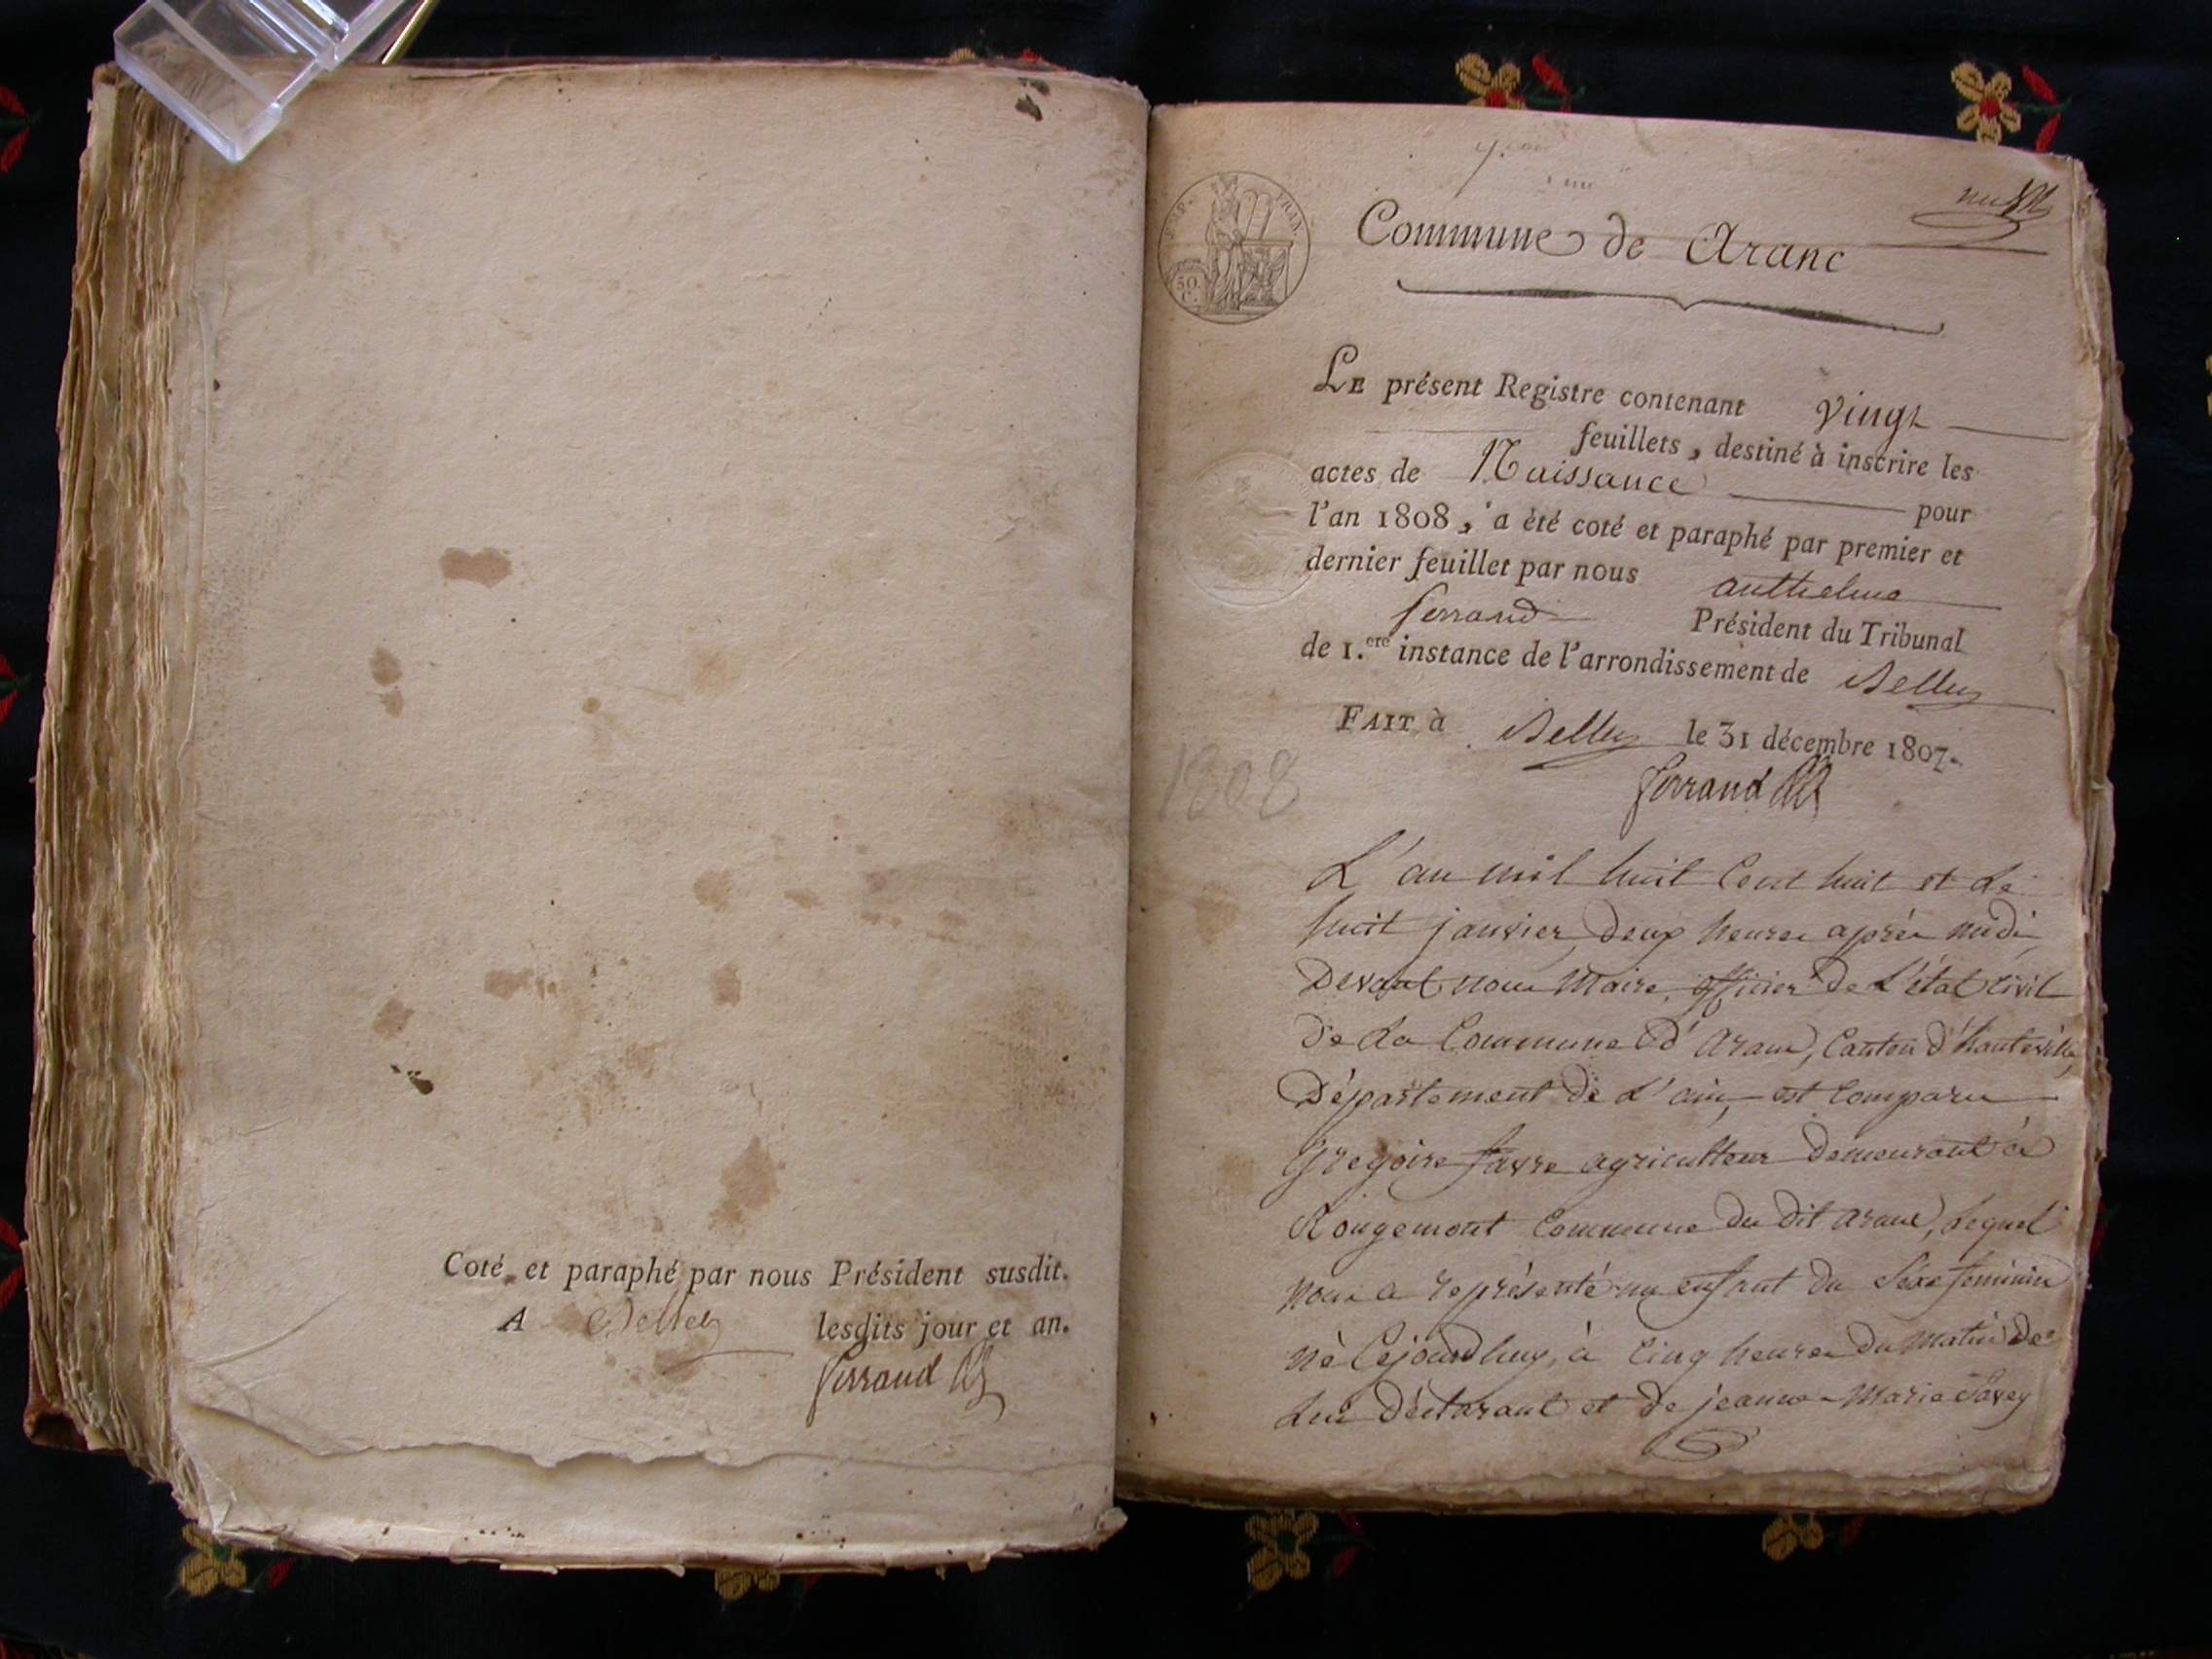 Coté et paraphé par nous Président susdit.
A Belley lesdits jour et an.
Ferrand
EMP. FRAN.
50.
C.
Commune de Aranc
LE présent Registre contenant vingt
feuillets, destiné à inscrire les
actes de Naissance pour
l'an 1808, a été coté et paraphé par premier et
dernier feuillet par nous anthelme
ferrand Président du Tribunal
de 1.ere instance de l'arrondissement de Belley
FAIT à Belley le 31 décembre 1807.
ferrand
1808
L'an mil huit Cent huit et Le
huit janvier, deux heures après midi
Devant nous Maire, officier de L'état Civil
De La Commune d'Aranc, Canton d'hauteville,
Département de L'ain, est Comparu
Gregoire favre agriculteur Demeurant à
Rougemont Commune du dit aranc, Lequel
Nous a représenté un enfant du Sexe feminin
né Cejourdhuy, à Cinq heures du Matin De
Lui Déclarant et de jeanne-Marie Savey